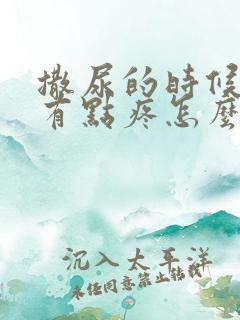 撒尿的時候
有點疼怎麼
沉入太平洋
未经同意禁止转载